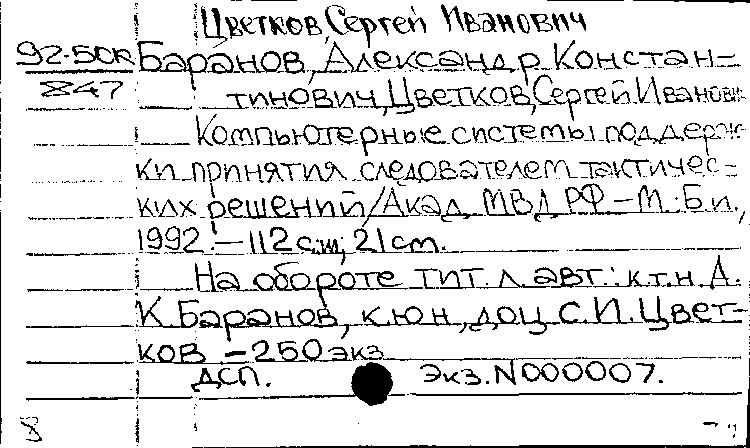 Цветков, Сергей Иванович
92-50к Баранов, Александр Констан-
847 тинович, Цветков, Сергей Иванович
Компьютерные системы поддерж
ки принятия следователем тактичес-
ких решений/Акад. МВД РФ – М.: Б.и.,
1992. – 112 с.ш; 21 cm.
На обороте тит. л. авт.: к.т.н. А.
К. Баранов, к.ю.н., доц С.И. Цвет-
ков – 250 экз
ДСП. Экз. N000007.
8